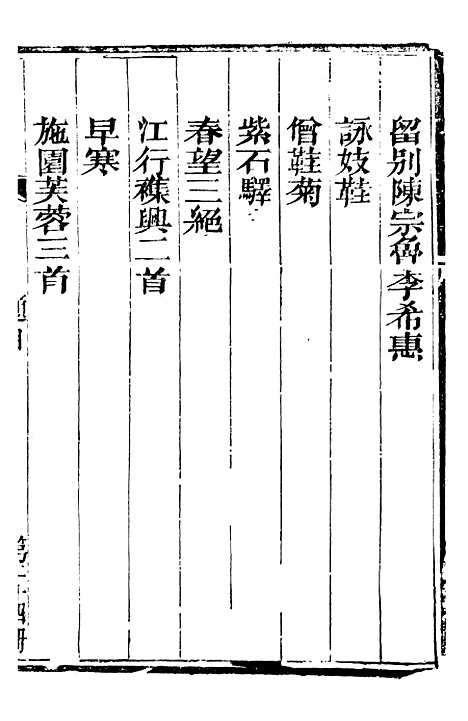 留别陳宗魯李希惠
詠妓鞋
僧鞋菊
紫石驛
春望三絕
江行襍興二首
早寒
施園芙蓉三首